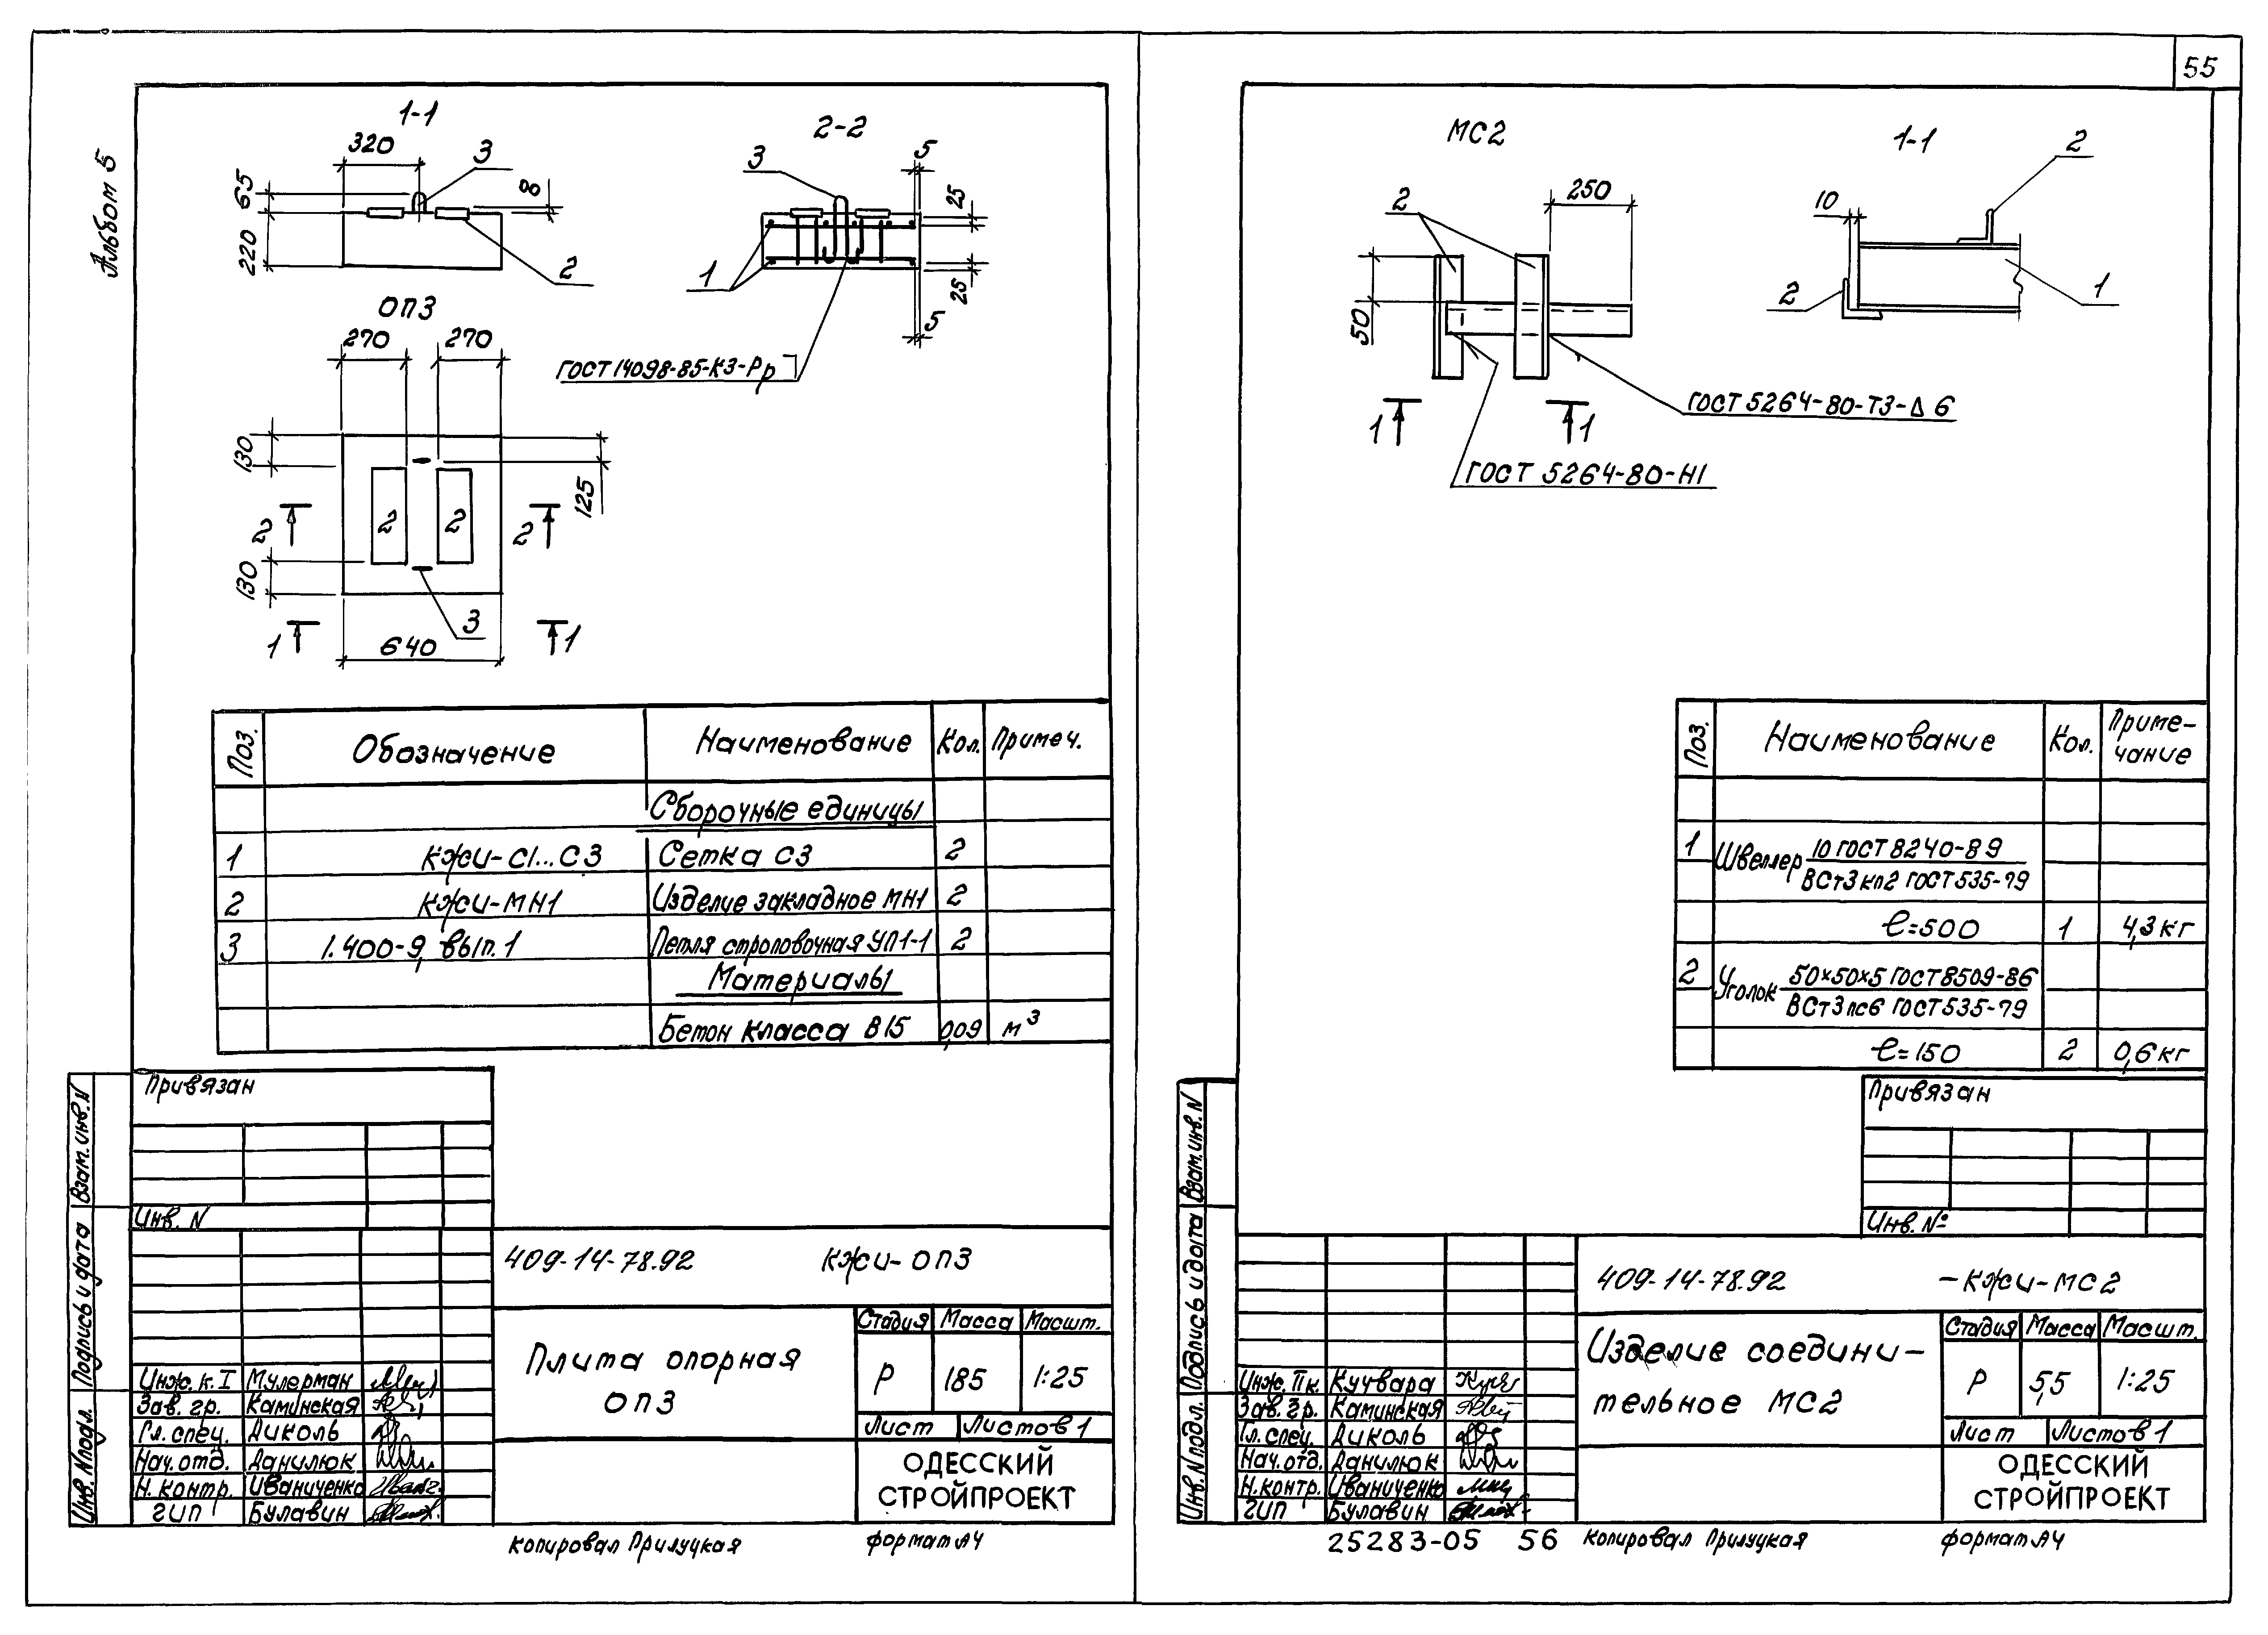 55
Альбом 5
1-1
320
3
65
220
8
2
2-2
3
5
25
1
25
5
ГОСТ 14098-85-К3-Рр
ОП3
270 270
130
125
2 2 2 2
130
3
1 1
640
Поз. Обозначение Наименование Кол. Примеч.
Сборочные единицы
1 КЖИ-С1...С3 Сетка С3 2
2 КЖИ-МН1 Изделие закладное МН1 2
3 1.400-9, вып.1 Петля строповочная УП1-1 2
Материалы
Бетон класса В15 0,09 м³
Привязан
Инв. N
Взам. инв. N
Подпись и дата
Инв. N подл.
409-14-78.92 КЖИ-ОП3
Плита опорная
ОП3
Стадия Масса Масшт.
Р 185 1:25
Лист Листов 1
Инж. к. I Мулерман
Зав. гр. Каминская
Гл. спец. Диколь
Нач. отд. Данилюк
Н. контр. Иваниченко
ГИП Булавин
ОДЕССКИЙ
СТРОЙПРОЕКТ
Копировал Прилуцкая формат А4
МС2
2
250
50
ГОСТ 5264-80-Т3-Δ 6
1 1
ГОСТ 5264-80-Н1
1-1
2
10
2
1
Поз. Наименование Кол. Приме-
чание
1 Швеллер 10 ГОСТ 8240-89
ВСт3кп2 ГОСТ 535-79
ℓ=500 1 4,3 кг
2 Уголок 50×50×5 ГОСТ 8509-86
ВСт3пс6 ГОСТ 535-79
ℓ=150 2 0,6 кг
Привязан
Инв. №
Взам. инв. N
Подпись и дата
Инв. N подл.
409-14-78.92 -КЖИ-МС2
Изделие соедини-
тельное МС2
Стадия Масса Масшт.
Р 5,5 1:25
Лист Листов 1
Инж. Пк. Кучвара
Зав. гр. Каминская
Гл. спец. Диколь
Нач. отд. Данилюк
Н. контр. Иваниченко
ГИП Булавин
ОДЕССКИЙ
СТРОЙПРОЕКТ
25283-05 56 Копировал Прилуцкая формат А4